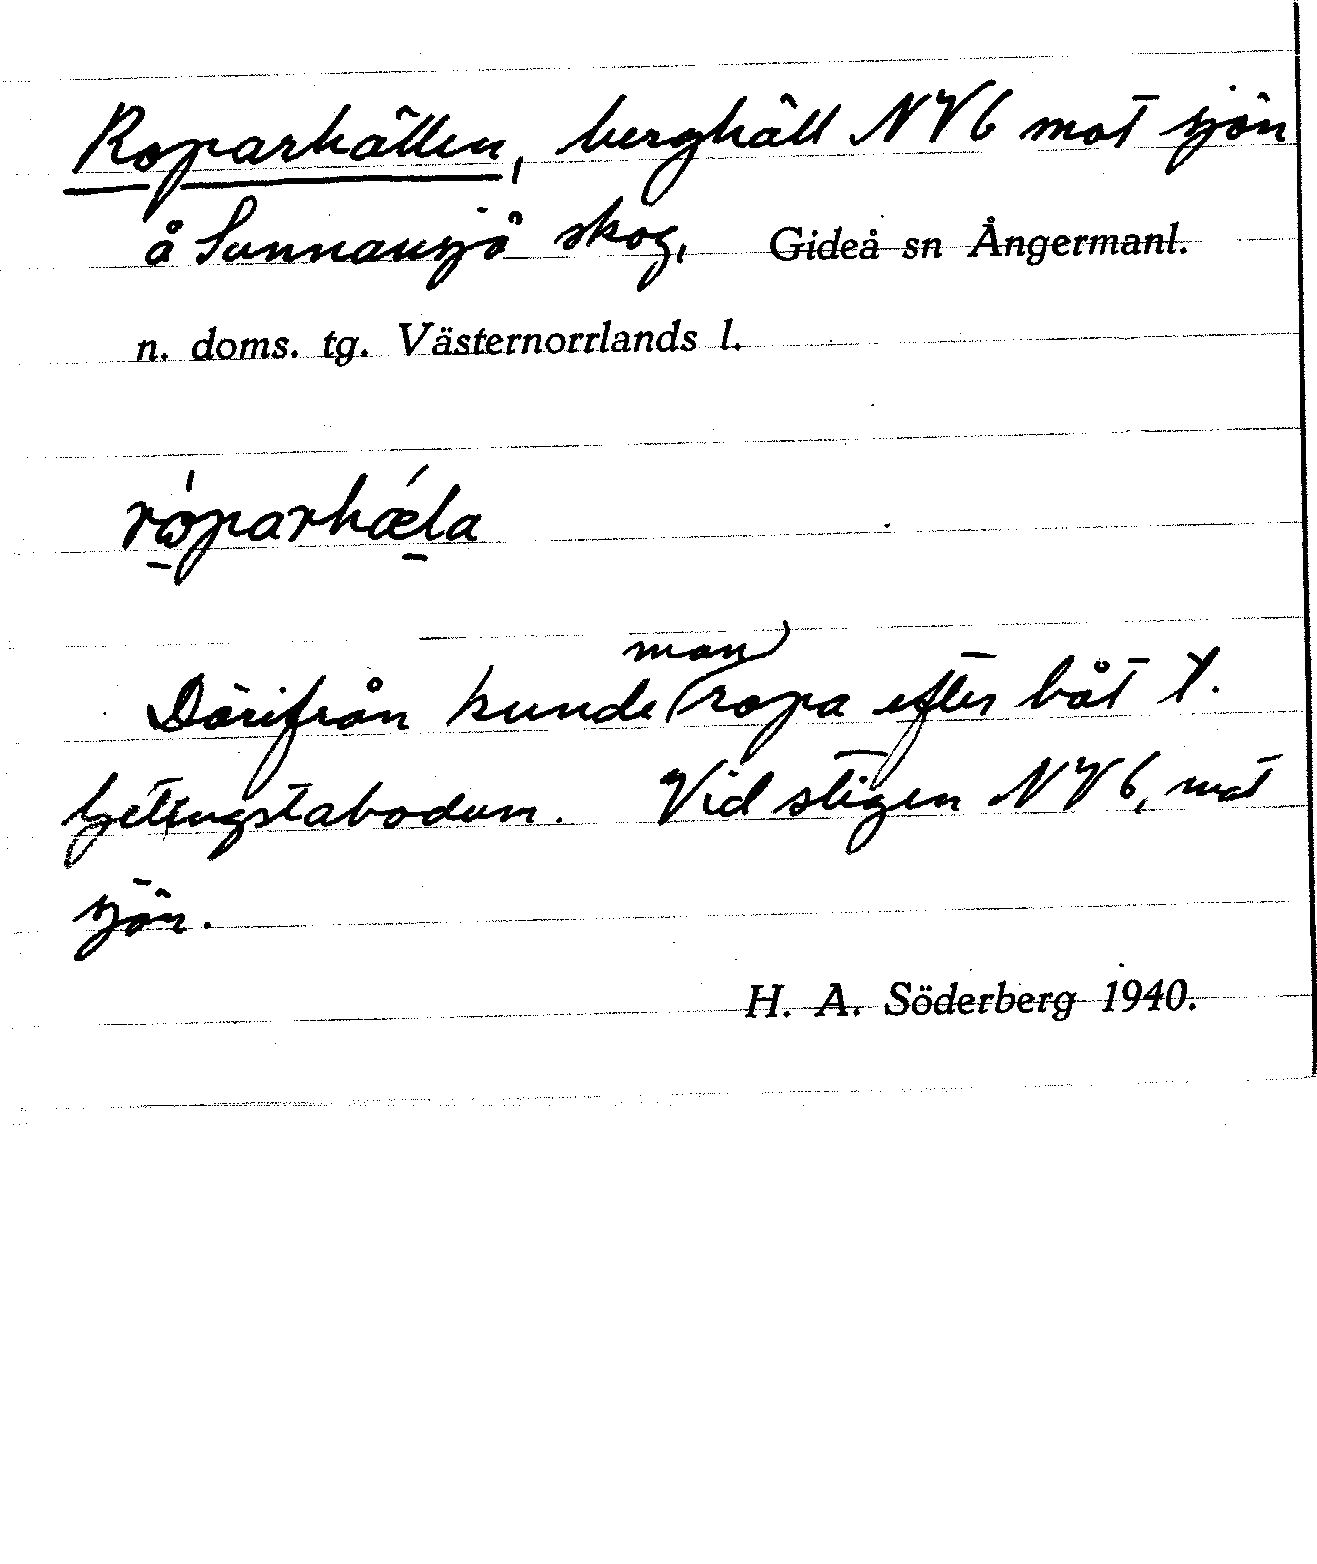 Roparhällen, berghäll NV6 mot sjön
å Sunnansjö skog, Gideå sn Ångermanl.
n. doms. tg. Västernorrlands l.
róparhǽla
Därifrån kunde man ropa efter båt t.
bodum. Vid stigen NV6, mot
sjön.
H. A. Söderberg 1940.